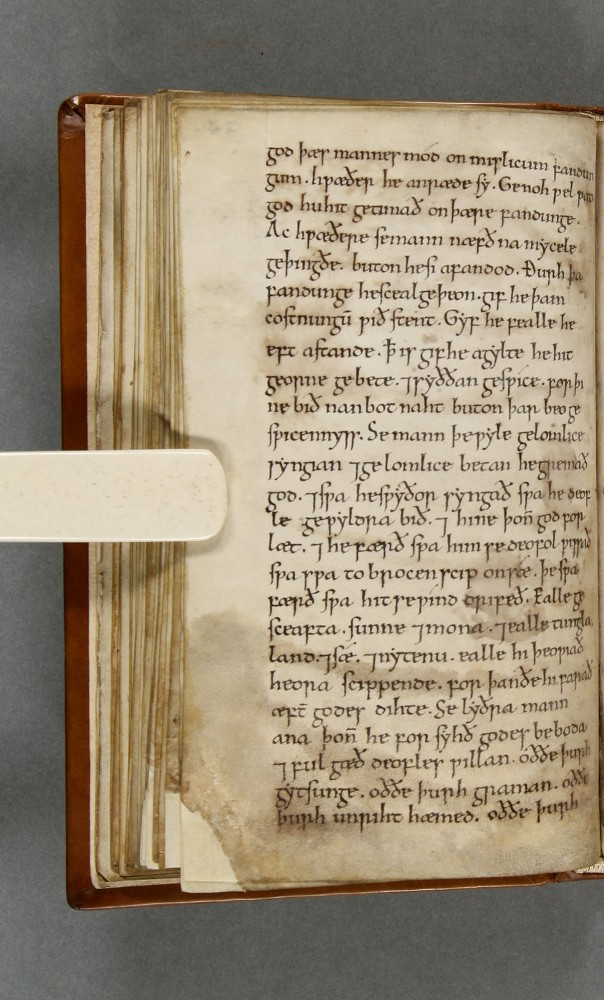 god þæs mannes mód on mislicum fandun
gum. hƿæðer he anræde sy. Genoh ƿel ƿat
god hu hit getimað on þære fandunge.
Ac hƿæðere se mann næfð na mycele
geþingðe. buton he si afandod. Ðurh þa
fandunge he sceal geþeon. gif he þam
costnungū ƿið stent. Gyf he fealle he
eft astande. ꝥ is gif he agylte he hit
georne gebete. ⁊ syððan gesƿice. forþi
ne bið nan bot naht buton þar beo ge
sƿicennyss. Se mann þe ƿyle gelomlice
syngian ⁊ gelomlice betan he gremað
god. ⁊ sƿa he sƿyðor syngað sƿa he deof
le geƿyldra bið. ⁊ hine þoñ god for
læt. ⁊ he færð sƿa him se deofol ƿissað
sƿa sƿa tobrocen scip on sǽ. þe sƿa
færð sƿa hit se ƿind drifeð. Ealle ge
sceafta. sunne ⁊ mona. ⁊ ealle tungla.
land. ⁊ sǽ. ⁊ nytenu. ealle hi þeoƿiað
heora scippende. for þan ðe hi farað
æft̄ godes dihte. Se lyðra mann
ana þoñ he forsyhð godes beboda
⁊ fulgæð deofles ƿillan. oððe þurh
gytsunge. oððe þurh graman. oððe
þurh unriht hæmed. oððe þurh